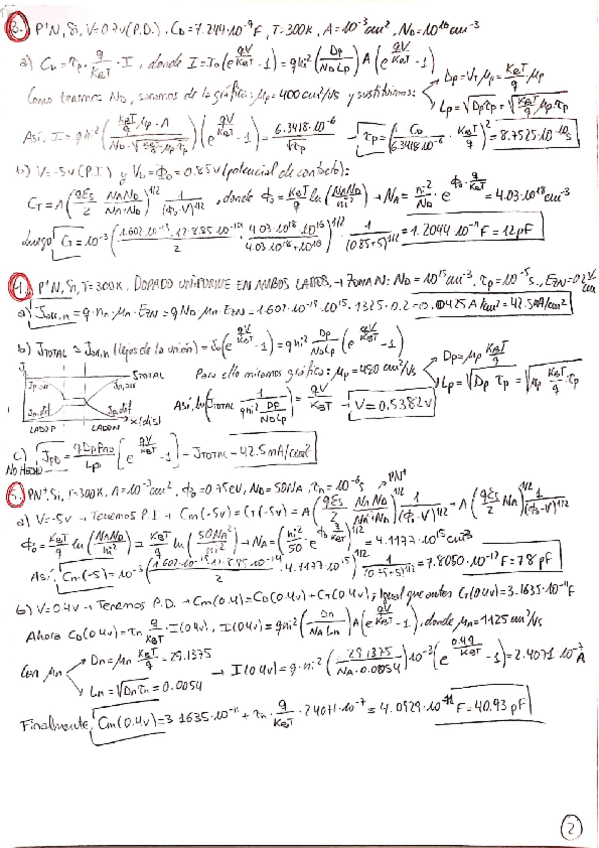 3. P⁺N, Si, V=0.7V (P.D.), C_D=7.244·10⁻⁹F, T=300K, A=10⁻³cm², N_D=10¹⁶cm⁻³
a) C_D = τ_p · q/(K_BT) · I, donde I=I_0(e^(qV/K_BT) -1) = q ni² (D_p/(N_D L_p)) A (e^(qV/K_BT) -1)
D_p = V_T μ_p = K_BT/q μ_p
Como tenemos N_D, sacamos de la gráfica: μ_p = 400cm²/Vs y sustituimos:
L_p = √(D_p τ_p) = √(K_BT/q μ_p τ_p)
Así, I = q ni² ( (K_BT/q μ_p · A) / (N_D √(K_BT/q μ_p τ_p)) ) (e^(qV/K_BT) -1) = 6.3418·10⁻⁶/√τ_p → τ_p = (C_D/6.3418·10⁻⁶ · K_BT/q)² = 8.7525·10⁻¹⁰s
b) V=-5V (P.I) y V_b=Φ_0=0.85V (potencial de contacto):
C_T = A (qε_s/2 N_A N_D/(N_A+N_D))^(1/2) 1/(Φ_0-V)^(1/2), donde Φ_0 = K_BT/q ln(N_A N_D/ni²) → N_A = ni²/N_D · e^(Φ_0 q/K_BT) = 4.03·10¹⁸cm⁻³
Luego C_T = 10⁻³ 1/(0.85+5)^(1/2) = 1.2044·10⁻¹¹F = 12pF
4. P⁺N, Si, T=300K. DOPADO UNIFORME EN AMBOS LADOS, → ZONA N: N_D = 10¹⁵cm⁻³, τ_p=10⁻⁵s, E_ZN=0.2 V/cm
a) J_DR,n = q·n_n·μ_n·E_ZN = q N_D μ_n E_ZN = 1.602·10⁻¹⁹·10¹⁵·1325·0.2 = 0.0425A/cm² = 42.5mA/cm²
b) J_TOTAL ≅ J_DR,n (lejos de la unión) = J_0(e^(qV/K_BT) -1) = q ni² D_p/(N_D L_p) (e^(qV/K_BT) -1)
J J_TOTAL
LADO P LADO N x (dist)
Para ello miramos gráfica: μ_p=450 cm²/Vs
D_p = μ_p K_BT/q
L_p = √(D_p τ_p) = √(μ_p K_BT/q τ_p)
Así, ln(J_TOTAL 1/(q ni² D_p/(N_D L_p))) = qV/K_BT → V=0.5382V
c) J_pD = q D_p P_n0/L_p [e^(qV/K_BT) -1] → J_TOTAL = 42.5mA/cm²
5. PN⁺, Si, T=300K, A=10⁻³cm², Φ_0=0.75eV, N_D=50N_A, τ_n=10⁻⁶s
a) V=-5V → Tenemos P.I → C_m(-5V) = C_T(-5V) = A (qε_s/2 N_A N_D/(N_A+N_D))^(1/2) 1/(Φ_0-V)^(1/2) PN⁺ → A (qε_s/2 N_A)^(1/2) 1/(Φ_0-V)^(1/2)
Φ_0 = K_BT/q ln(N_A N_D/ni²) = K_BT/q ln(50N_A²/ni²) → N_A = = 4.1177·10¹⁵cm⁻³
Así, C_m(-5) = 10⁻³ 1/(0.75+5)^(1/2) = 7.8050·10⁻¹²F = 7.8pF
b) V=0.4V → Tenemos P.D. → C_m(0.4) = C_D(0.4V) + C_T(0.4V); Igual que antes C_T(0.4V)=3.1635·10⁻¹¹F
Ahora C_D(0.4V) = τ_n q/K_BT · I(0.4V), I(0.4V) = q ni² (D_n/(N_A L_n)) A (e^(qV/K_BT) -1), donde μ_n=1125cm²/Vs
Con μ_n D_n = μ_n K_BT/q = 29.1375
L_n = √(D_n τ_n) = 0.0054
→ I(0.4V) = q·ni² (29.1375/(N_A·0.0054)) 10⁻³ (e^(0.4q/K_BT) -1) = 2.4071·10⁻⁷A
Finalmente, C_m(0.4V) = 3.1635·10⁻¹¹ + τ_n · q/K_BT · 2.4071·10⁻⁷ = 4.0929·10⁻¹¹F = 40.93pF
2